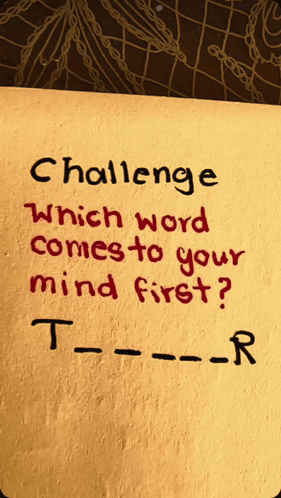 Challenge
Which word
comes to your
mind first?
T _ _ _ _ _ R